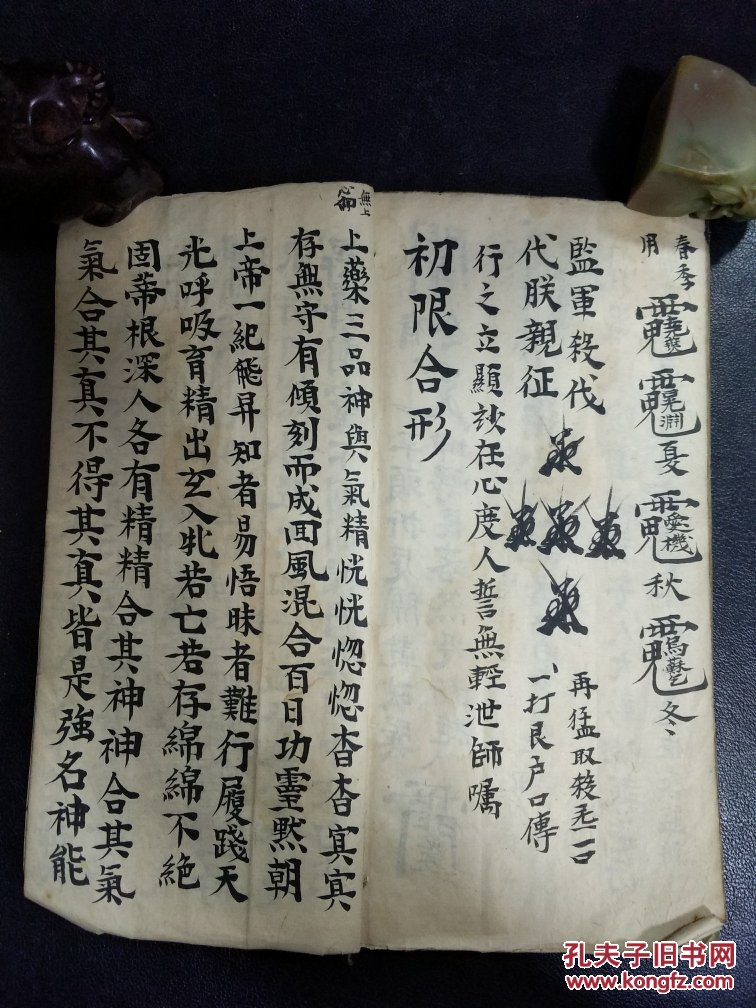 春季
用
夏
秋
冬
監軍殺伐
再猛取殺炁一口
代朕親征
一打艮户口傳
行之立顯訣在心度人誓無輕泄師囑
初限合形
無上
心印
上藥三品神與氣精恍恍惚惚杳杳冥冥
存無守有傾刻而成囬風混合百日功霊默朝
上帝一紀飛昇知者易悟昧者難行履踐天
光呼吸育精出玄入牝若亡若存綿綿不絕
固蒂根深人各有精精合其神神合其氣
氣合其真不得其真皆是強名神能
孔夫子旧书网
www.kongfz.com